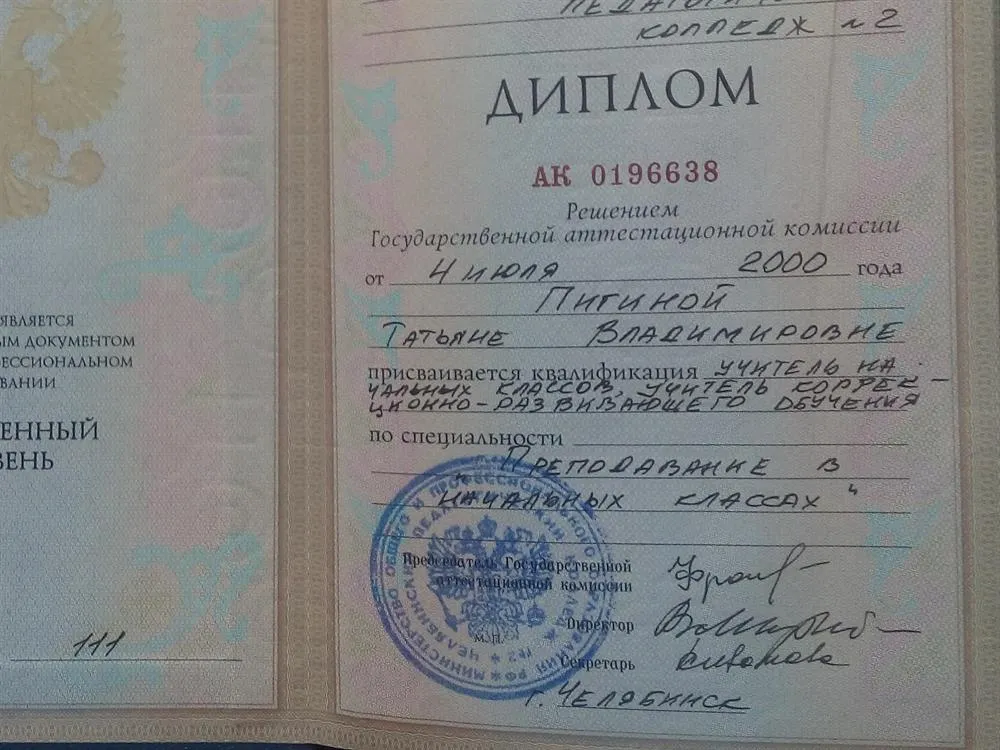 ЯВЛЯЕТСЯ
ЫМ ДОКУМЕНТОМ
ЕССИОНАЛЬНОМ
ВАНИИ
ЕННЫЙ
ВЕНЬ
111
КОЛЛЕДЖ №2
ДИПЛОМ
АК 0196638
Решением
Государственной аттестационной комиссии
от 4 ИЮЛЯ 2000 года
ПИГИНОЙ
ТАТЬЯНЕ ВЛАДИМИРОВНЕ
присваивается квалификация УЧИТЕЛЬ НА
ЧАЛЬНЫХ КЛАССОВ, УЧИТЕЛЬ КОРРЕК-
ЦИОННО-РАЗВИВАЮЩЕГО ОБУЧЕНИЯ
по специальности
"ПРЕПОДАВАНИЕ В
НАЧАЛЬНЫХ КЛАССАХ"
Председатель Государственной
аттестационной комиссии
Директор
М.П.
Секретарь
г. ЧЕЛЯБИНСК
МИНИСТЕРСТВО ОБЩЕГО И ПРОФЕССИОНАЛЬНОГО ОБРАЗОВАНИЯ РФ
ЧЕЛЯБИНСКИЙ ПЕДАГОГИЧЕСКИЙ КОЛЛЕДЖ №2